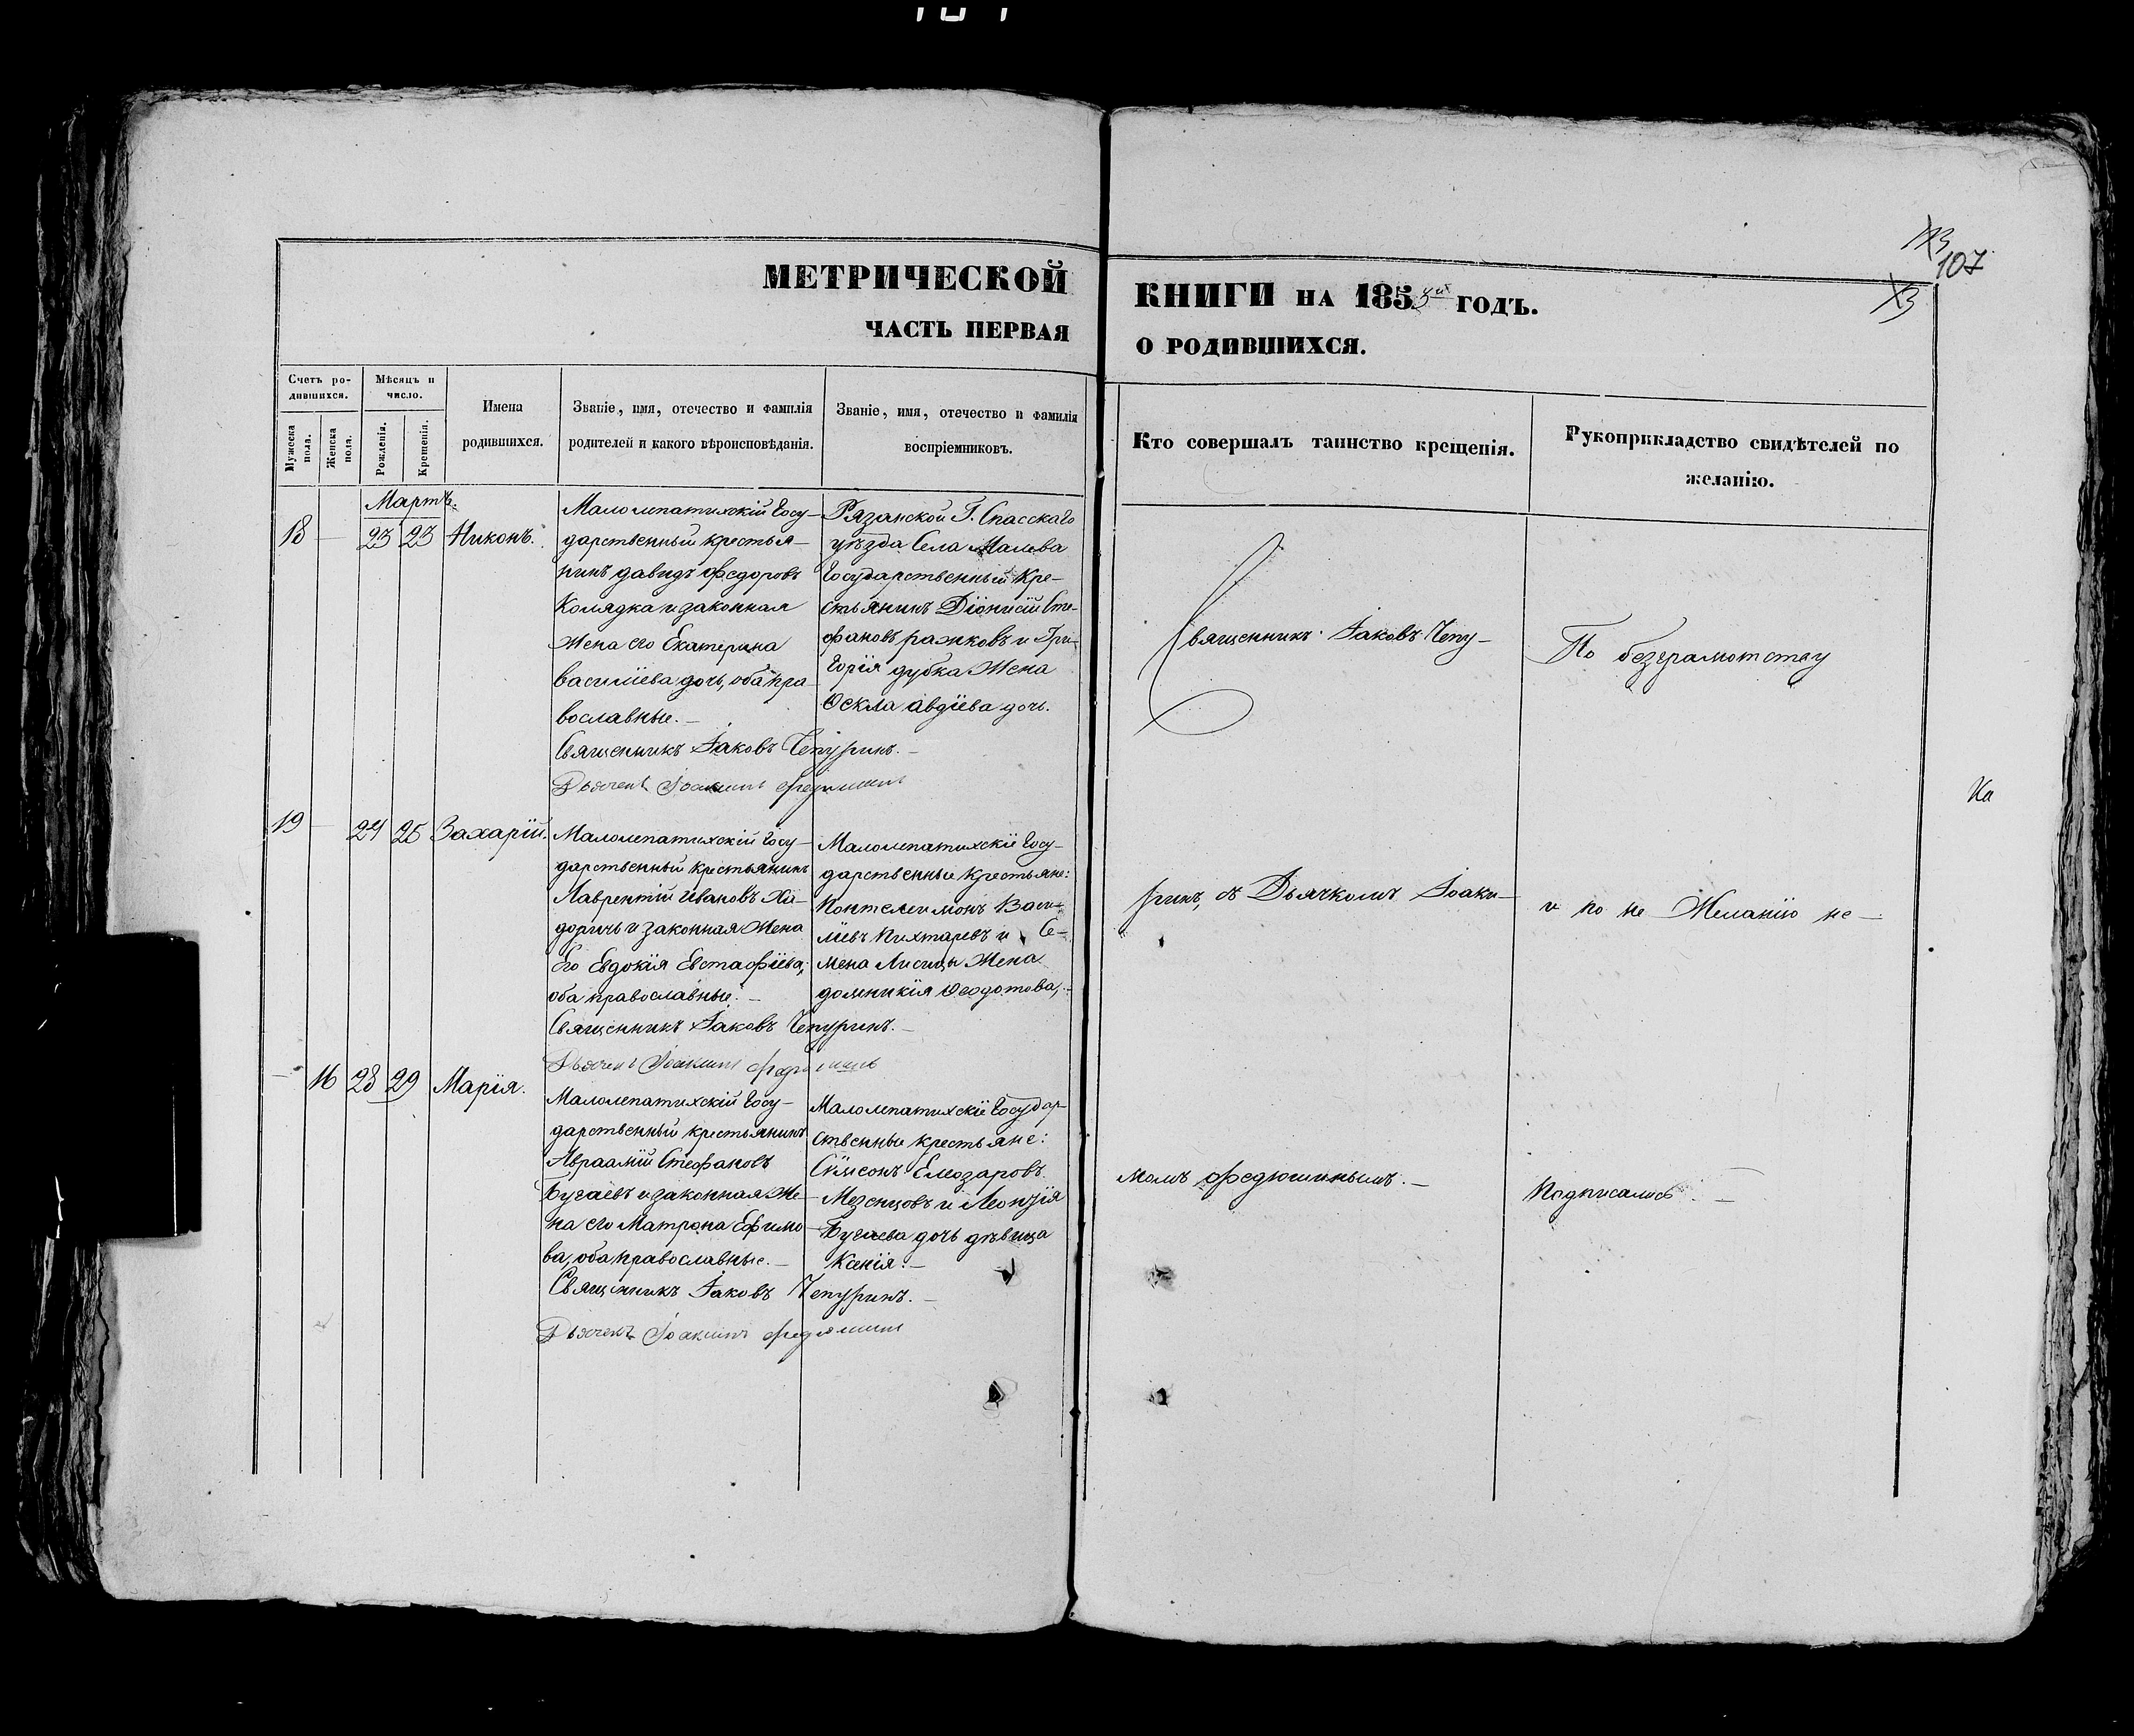 107
МЕТРИЧЕСКОЙ КНИГИ НА 1853 ій ГОДЪ.
ЧАСТЬ ПЕРВАЯ О РОДИВШИХСЯ.
Счетъ ро-
дившихся.
Мужеска
пола.
Женска
пола.
Мѣсяцъ и
число.
Рожденія.
Крещенія.
Имена
родившихся.
Званіе, имя, отечество и фамилія
родителей и какого вѣроисповѣданія.
Званіе, имя, отечество и фамилія
воспріемниковъ.
Кто совершалъ таинство крещенія.
Рукоприкладство свидѣтелей по
желанію.
Мартъ.
18 — 23 23 Никонъ.
Малолепатихскій Госу-
дарственный крестья-
нинъ давидъ федоровъ
Колядка и законная
Жена его Екатерина
василіева дочь, оба пра-
вославные. —
Священникъ Іаковъ Чепуринъ. —
Дьячекъ Іоакимъ Федюшинъ
Рязанской Г. Спасскаго
уѣзда Села
Государственный Кре-
стьянинъ Діонисій Сте-
фановъ ражковъ и Гри-
горія дубка Жена
Ѳекла авдіева дочь.
19 — 24 25 Захарій.
Малолепатихскій Госу-
дарственный крестьянинъ
Лаврентій Ивановъ
и законная Жена
Его Евдокія Евстафіева;
оба православные. —
Священникъ Іаковъ Чепуринъ. —
Дьячекъ Іоакимъ Федюшинъ
Малолепатихскіе Госу-
дарственные крестьяне:
Понтелеимонъ Васи-
ліевъ Пихтаревъ и Се-
мена Лисицы Жена
домникія Ѳеодотова, —
— 16 28 29 Марія.
Малолепатихскій Госу-
дарственный крестьянинъ
Авраамій Стефановъ
Бугаевъ и законная Же-
на его Матрона Ефимо-
ва, оба православные. —
Священникъ Іаковъ Чепуринъ. —
Дьячекъ Іоакимъ Федюшинъ
Малолепатихскіе Государ-
ственные крестьяне:
Сѵмеонъ Елеозаровъ
Мезенцовъ и Леонтія
Бугаева дочь дѣвица
Ксенія. —
Священникъ Іаковъ Чепу-
ринъ, съ Дьячкомъ Іоаки-
момъ федюшинымъ. —
По безграмотству
и по не Желанію не —
подписались. —
Ка